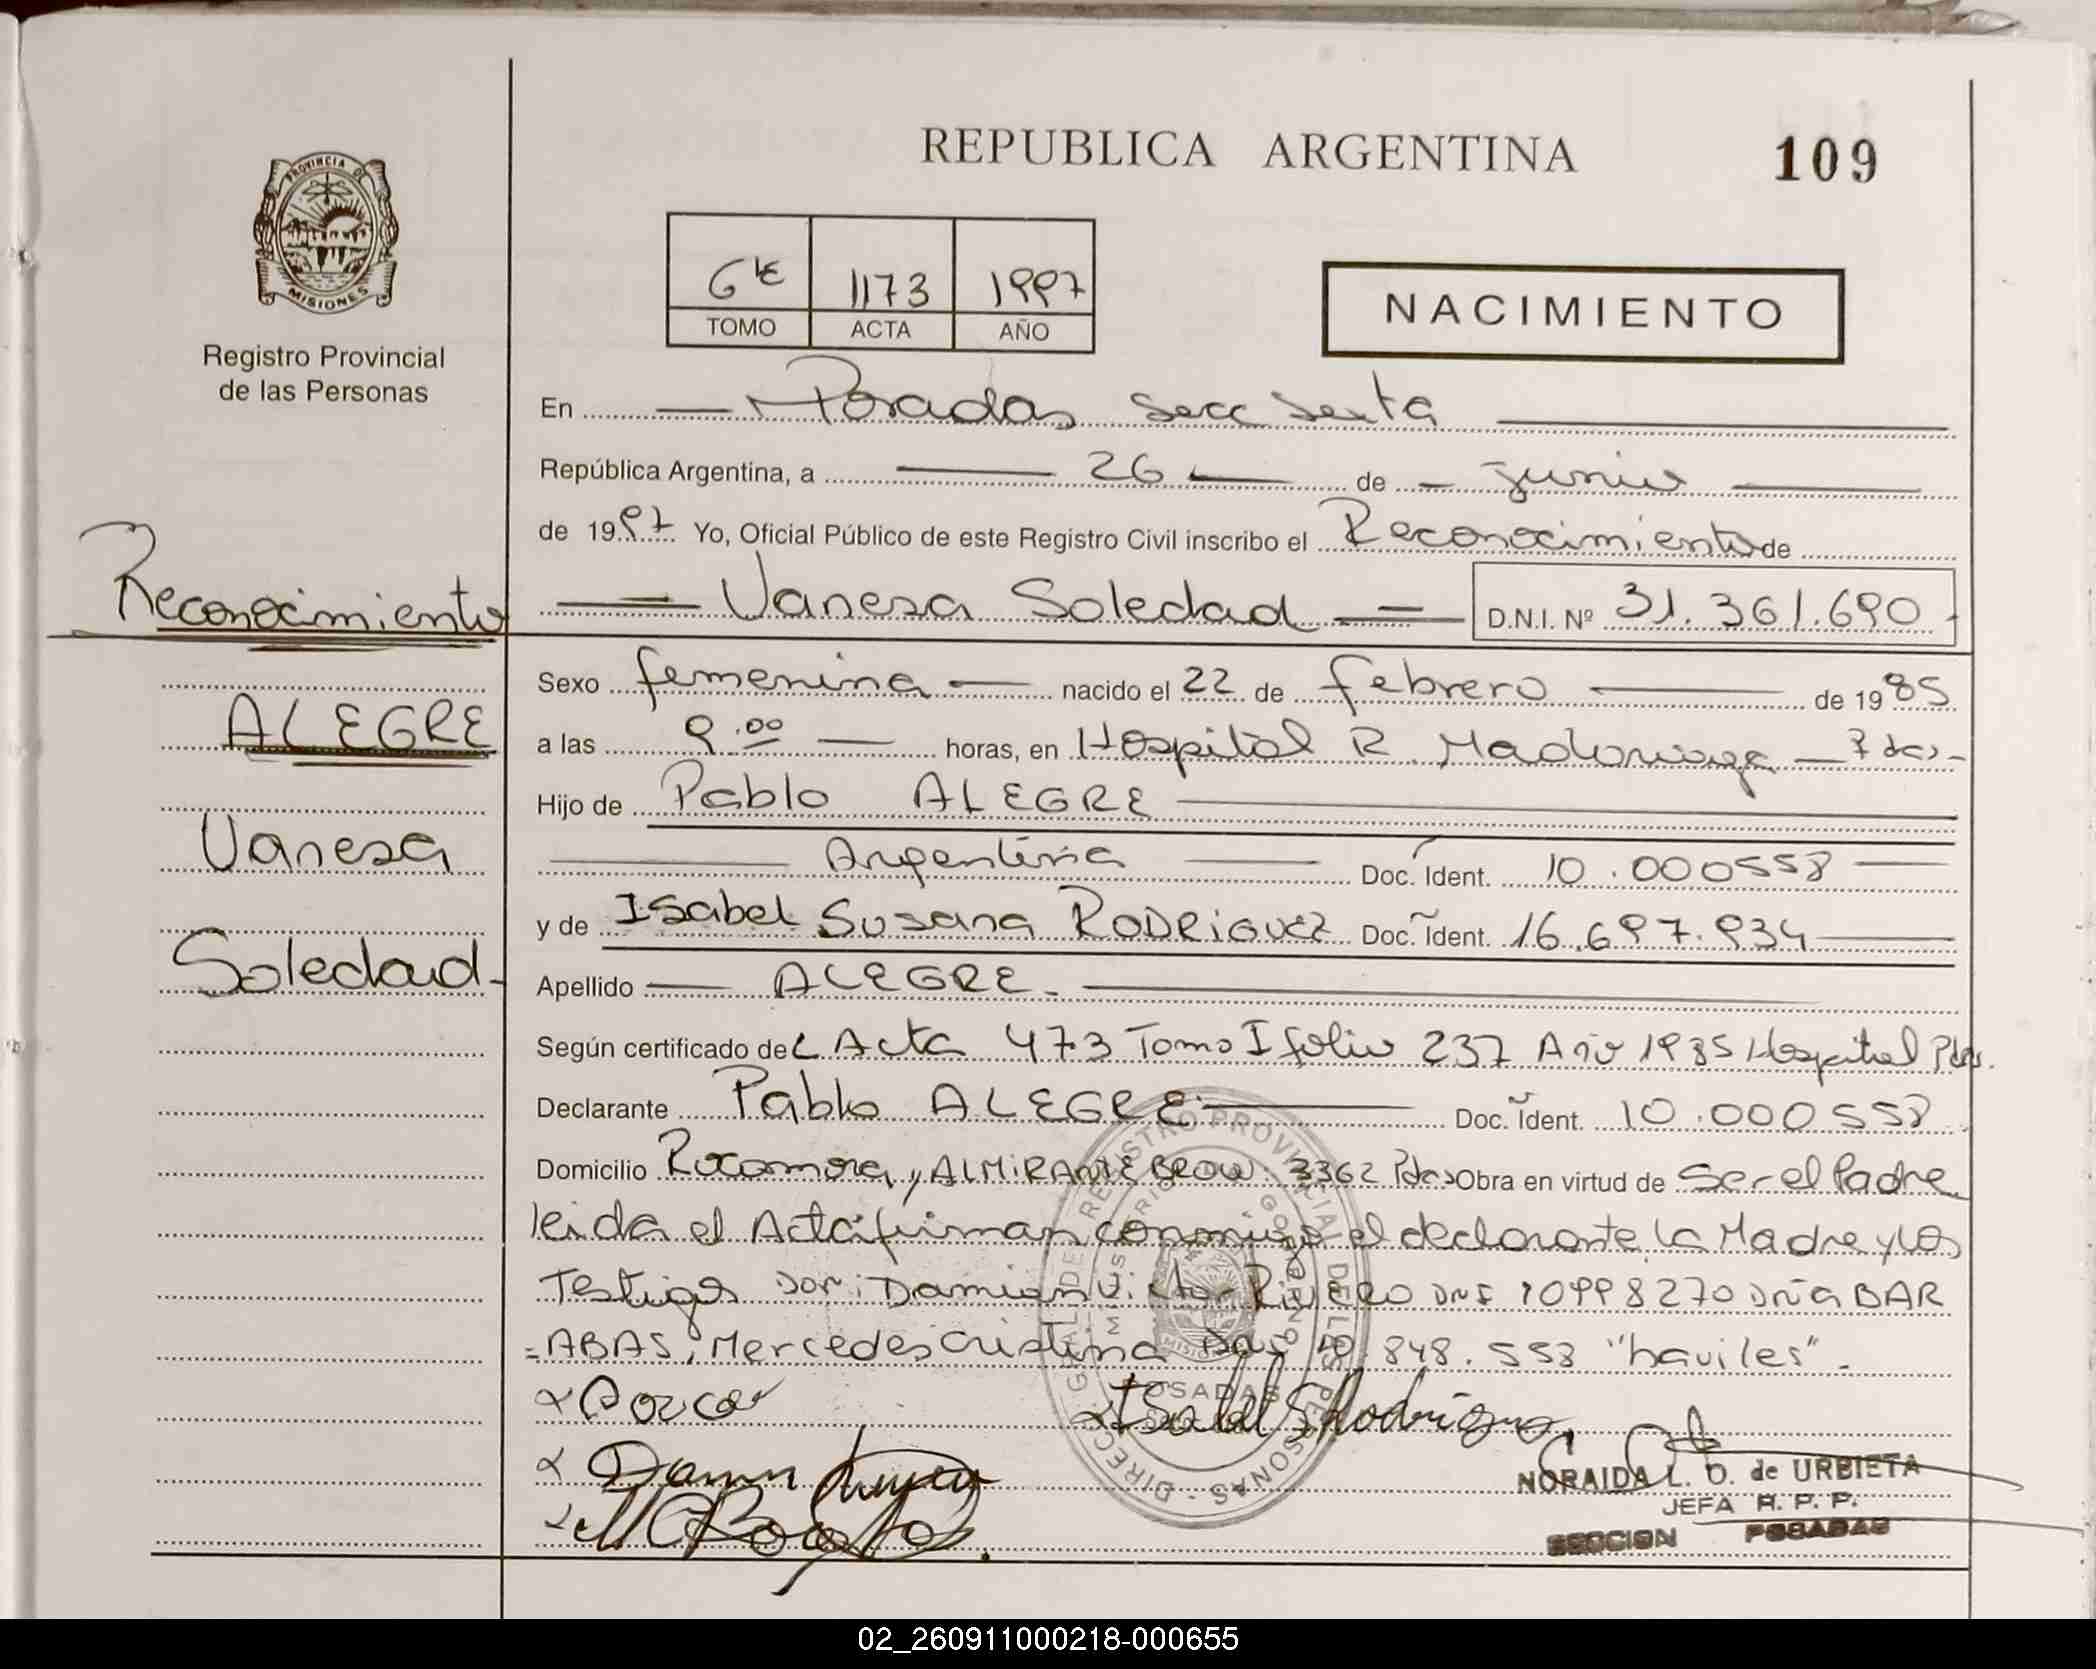 REPUBLICA ARGENTINA
109
PROVINCIA DE
MISIONES
Registro Provincial
de las Personas
6 1173 1997
TOMO ACTA AÑO
NACIMIENTO
En Posadas Secc Sexta
República Argentina, a 26 de junio
de 1997 Yo, Oficial Público de este Registro Civil inscribo el Reconocimiento de
Reconocimiento
Vanesa Soledad D.N.I. Nº 31.361.690
Sexo femenina nacido el 22 de febrero de 1985
ALEGRE
a las 9.00 horas, en Hospital R Madariaga
Hijo de Pablo ALEGRE
Vanesa
Argentina Doc. Ident. 10.000558
y de Isabel Susana RODRIGUEZ Doc. Ident. 16.697.934
Soledad
Apellido ALEGRE
Según certificado del Acta 473 Tomo I folio 237 Año 1985 Hospital Pdas.
Declarante Pablo ALEGRE Doc. Ident. 10.000558
Domicilio Rocamora y ALMIRANTE BROW: 3362 Pdas Obra en virtud de Ser el Padre
leida el Acta firman conmigo el declarante la Madre y los
Testigos son: Damian Victor RIVERO DNI 10998270 Dña BAR
=ABAS, Mercedes Cristina 848.558 "haviles".
Isabel S Rodriguez
NORAIDA L. D. de URBIETA
JEFA R. P. P.
SECCION POSADAS
02_260911000218-000655